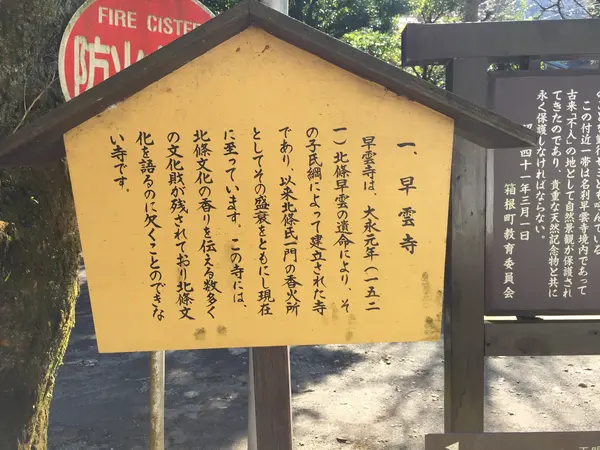 FIRE CISTER
防火
一、早雲寺
早雲寺は、大永元年(一五二
一)北條早雲の遺命により、そ
の子氏綱によって建立された寺
であり、以来北條氏一門の香火所
としてその盛衰をともにし現在
に至っています。この寺には、
北條文化の香りを伝える数多く
の文化財が残されており北條文
化を語るのに欠くことのできな
い寺です。
この付近一帯は名刹早雲寺境内であって
古来「不入」の地として自然景観が保護され
てきたのであり、貴重な天然記念物と共に
永く保護しなければならない。
四十一年三月一日
箱根町教育委員会